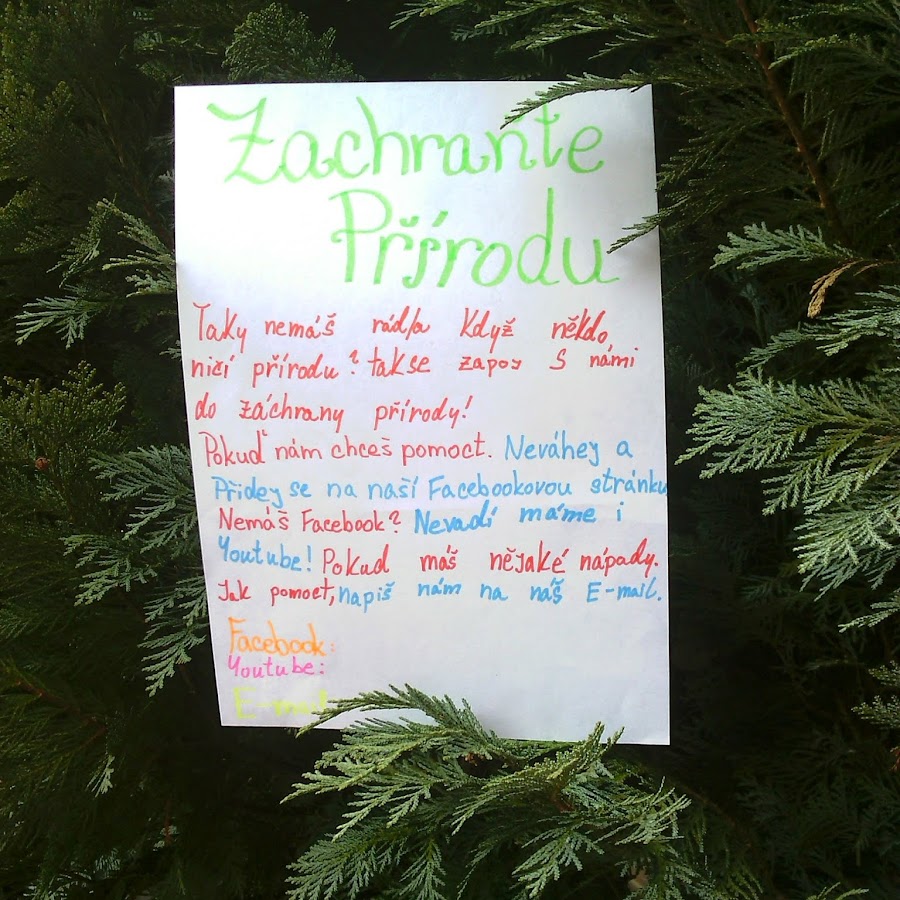 Zachraňte
Přírodu
Taky nemáš rád/a Když někdo,
ničí přírodu? tak se zapoj S námi
do záchrany přírody!
Pokuď nám chceš pomoct. Neváhej a
Přidej se na naší Facebookovou stránku
Nemáš Facebook? Nevadí máme i
Youtube! Pokud máš nějaké nápady.
Jak pomoct, napiš nám na náš E-mail.
Facebook:
Youtube:
E-mail